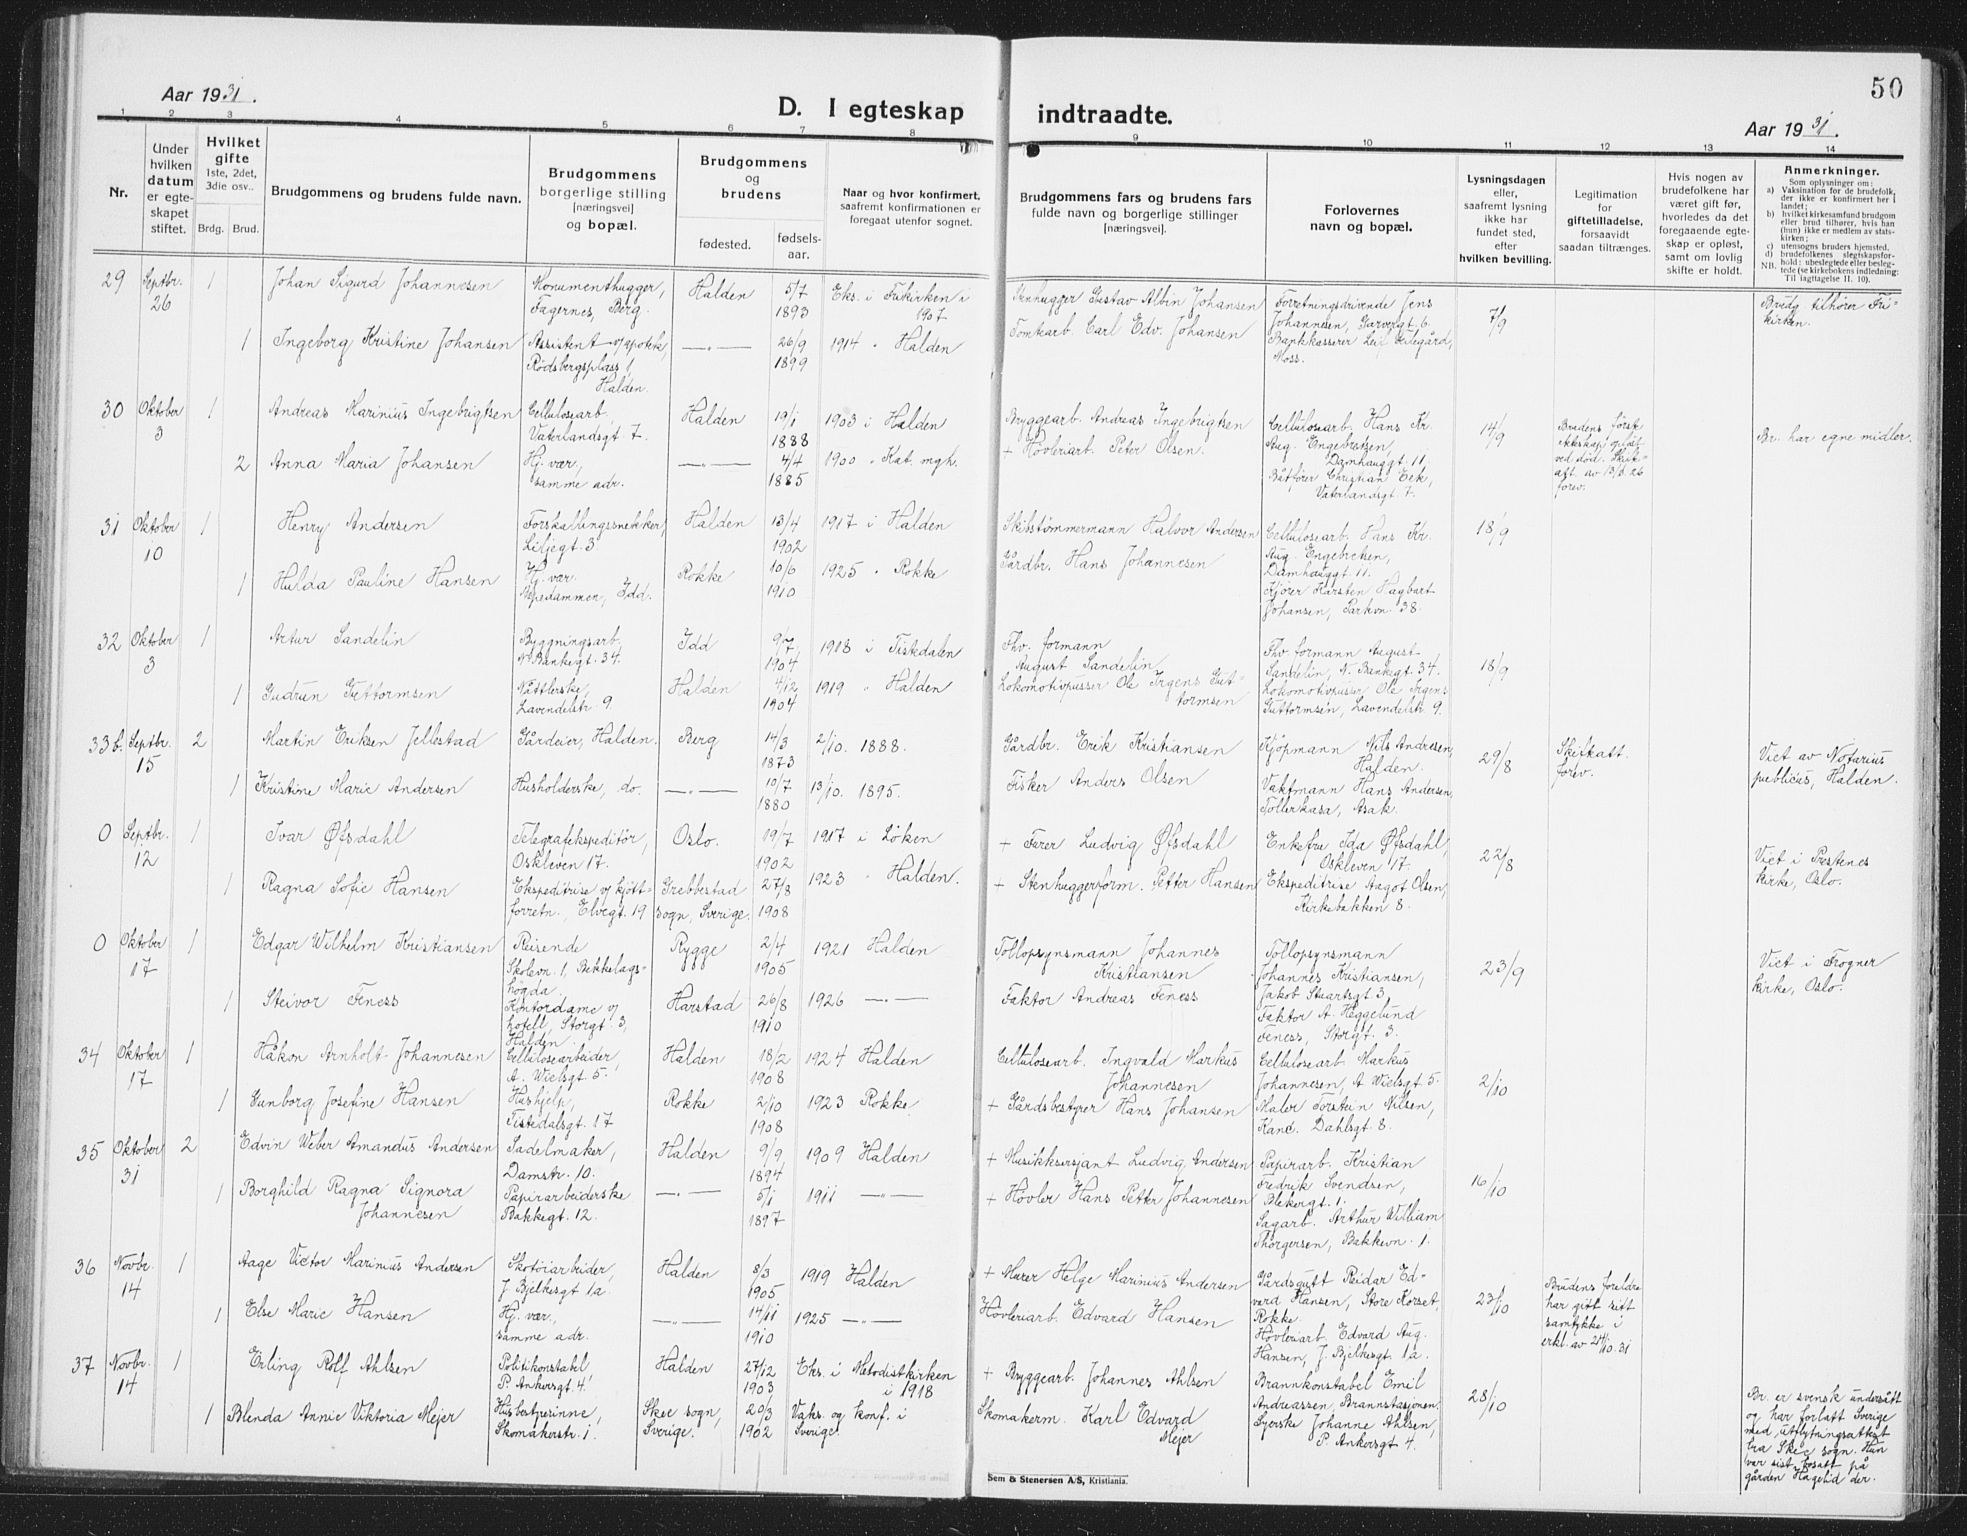 50
Aar 1931.
D. I egteskap indtraadte.
Aar 1931.
1 2 3 4 5 6 7 8 9 10 11 12 13 14
Nr.
Under
hvilken
datum
er egte-
skapet
stiftet.
Hvilket
gifte
1ste, 2det,
3die osv..
Brdg. Brud.
Brudgommens og brudens fulde navn.
Brudgommens
borgerlige stilling
[næringsvei]
og bopæl.
Brudgommens
og
brudens
fødested.
fødsels-
aar.
Naar og hvor konfirmert,
saafremt konfirmationen er
foregaat utenfor sognet.
Brudgommens fars og brudens fars
fulde navn og borgerlige stillinger
[næringsvei].
Forlovernes
navn og bopæl.
Lysningsdagen
eller,
saafremt lysning
ikke har
fundet sted,
efter
hvilken bevilling.
Legitimation
for
giftetilladelse,
forsaavidt
saadan tiltrænges.
Hvis nogen av
brudefolkene har
været gift før,
hvorledes da det
foregaaende egte-
skap er opløst,
samt om lovlig
skifte er holdt.
Anmerkninger.
Som oplysninger om:
a) Vaksination for de brudefolk,
der ikke er konfirmert her i
landet;
b) hvilket kirkesamfund brudgom
eller brud tilhører, hvis han
(hun) ikke er medlem av stats-
kirken;
c) utensogns bruders hjemsted.
d) brudefolkenes slegtskapsfor-
hold: ubeslegtede eller besleg-
tede (se kirkebokens indledning:
NB. Til iagttagelse II. 10).
29 Septbr. 26 1 Johan Sigurd Johannesen
Monumenthugger,
Fagernes, Berg.
Halden 5/7 1893
Eks. i Frikirken i
1907
Stenhugger Gustav Albin Johansen
Forretningsdrivende Jens
Johannesen, Garvergt. 6.
7/9
Brudg tilhører Fri-
kirken.
1 Ingeborg Kristine Johansen
Assistent v/apotek,
Rødsbergsplass 1,
Halden.
—„— 26/9 1899
1914 „ Halden
Tomtearb. Carl Edv. Johansen
Bankkasserer Leif Filegård,
Moss.
30 Oktober 3 1 Andreas Marinius Ingebrigtsen
Cellulosearb.
Vaterlandsgt 7.
Halden 19/1 1888
1903 i Halden
Bryggearb. Andreas Ingebrigtsen
Cellulosearb. Hans Kr.
Aug. Engebretsen,
Damhauggt. 11,
14/9
Brudens først
ekteskap opløst
ved død. Skift-
att. av 13/8 26
forev.
Br. har egne midler.
2 Anna Maria Johansen
Hj. vær,
samme adr.
—„— 4/4 1885
1900 „ Kat. mgh.
+ Høvleriarb. Peter Olsen.
Båtfører Christian Eek,
Vaterlandsgt 7.
31 Oktober 10 1 Henry Andersen
Forskallingssnekker,
Liljegt. 3
Halden 13/4 1902
1917 i Halden
Skibstømmermann Halvor Andersen
Cellulosearb. Hans Kr.
Aug. Engebretsen,
Damhauggt. 11.
18/9
1 Hulda Pauline Hansen
Hj. vær.
Vepedammen, Idd.
Rokke 10/6 1910
1925 „ Rokke
Gårdbr. Hans Johannesen
Kjører Karsten Hagbart
Johansen, Parkvn. 38.
32 Oktober 3 1 Artur Sandelin
Bygningsarb.
N. Bankegt. 34.
Idd 9/7 1904
1918 i Tistedalen
Fhv. formann
August Sandelin
Fhv. formann August
Sandelin, N. Bankegt. 34.
18/9
1 Gudrun Guttormsen
Nåtlerske,
Lavendelstr. 9
Halden 4/12 1904
1919 „ Halden
Lokomotivpusser Ole Irgens Gut-
tormsen
Lokomotivpusser Ole Irgens
Guttormsen, Lavendelstr. 9.
33b. Septbr. 15 2 Martin Eriksen Jellestad
Gårdeier, Halden.
Berg 14/3 1873
2/10. 1888.
Gårdbr. Erik Kristiansen
Kjøpmann Nils Andresen,
Halden.
29/8
Skifteatt.
forev.
Viet av Notarius
publicus, Halden.
1 Kristine Marie Andersen
Husholderske, do.
—„— 10/7 1880
13/10. 1895.
Fisker Anders Olsen
Vaktmann Hans Andersen,
Tollerkasa, Asak.
0 Septbr. 12 1 Ivar Øfsdahl
Telegrafekspeditør,
Oskleven 17.
Oslo. 19/7 1902
1917 i Løken
+ Fører Ludvig Øfsdahl
Enkefru Ida Øfsdahl,
Oskleven 17.
22/8
Viet i Prestenes
kirke, Oslo.
1 Ragna Sofie Hansen
Ekspeditrise v/ kjøtt-
forretn., Elvegt. 19
Grebbestad
sogn, Sverige.
27/8 1908
1923 „ Halden.
+ Stenhuggerform. Petter Hansen
Ekspeditrise Aagot Olsen,
Kirkebakken 8.
0 Oktober 17 1 Edgar Wilhelm Kristiansen
Reisende
Skolevn. 1, Bekkelags-
høgda.
Rygge 2/4 1905
1921 Halden
Tollopsynsmann Johannes
Kristiansen
Tollopsynsmann
Johannes Kristiansen,
Jakob Stuartsgt 3,
23/9
Viet i Frogner
kirke, Oslo.
1 Steivor Feness
Kontordame v/
hotell, Storgt. 3,
Halden.
Harstad 26/8 1910
1926 —„—
Faktor Andreas Feness
Faktor A. Heggelund
Feness, Storgt. 3.
34 Oktober 17 1 Håkon Arnholt Johannesen
Cellulosearbeider,
A. Wielsgt 5.
Halden 18/2 1908
1924 Halden
Cellulosearb. Ingvald Markus
Johannesen
Cellulosearb. Markus
Johannesen, A Wielsgt 5.
2/10
1 Gunborg Josefine Hansen
Hushjelp,
Tistedalsgt. 17
Rokke 2/10 1908
1923 Rokke
+ Gårdsbestyrer Hans Johansen
Maler Torstein Nilsen,
Kanc. Dahlsgt. 8.
35 Oktober 31 2 Edvin Weber Amandus Andersen
Sadelmaker,
Damstr. 10.
Halden 9/9 1894
1909 Halden
+ Musikksersjant Ludvig Andersen
Papirarb. Kristian
Fredrik Svendsen,
Blekergt. 1.
16/10
1 Borghild Ragna Signora
Johannesen
Papirarbeiderske
Bakkegt. 12.
—„— 5/1 1897
1911 —„—
+ Høvler Hans Petter Johannesen
Sagarb. Arthur William
Thorgersen, Bakkevn. 1.
36 Novbr. 14 1 Aage Victor Marinius Andersen
Skotøiarbeider,
J. Bjelkesgt 1a.
Halden 8/3 1905
1919 Halden
+ Murer Helge Marinius Andersen
Gårdsgutt Reidar Ed-
vard Hansen, Store Korset,
Rokke.
23/10
Brudens foreldre
har gitt sitt
samtykke i
erkl. av 21/10. 31
1 Else Marie Hansen
Hj. vær.,
samme adr.
—„— 14/11 1910
1925 —„—
Høvleriarb. Edvard Hansen
Høvleriarb. Edvard Aug.
Hansen, J. Bjelkesgt. 1a.
37 Novbr. 14 1 Erling Rolf Ahlsen
Politikonstabel,
P. Ankersgt. 4.
Halden 27/12 1903
Eks. i Metodistkirken
i 1918
+ Bryggearb. Johannes Ahlsen
Brannkonstabel Emil
Andreassen, Brannstasjonen.
28/10
Br. er svensk undersått
og har forlatt Sverige
med utflytningsattest
fra Skee sogn. Hun
var sist bosatt på
gården Hagelid der.
1 Blenda Annie Viktoria Mejer
Husbestyrerinne,
Skomakerstr. 1.
Skee sogn,
Sverige.
20/3 1902
Vaks. og konf. i
Sverige.
Skomakerm. Karl Edvard
Mejer
Syerske Johanne Ahlsen,
P. Ankersgt 4.
Sem & Stenersen A/S, Kristiania.